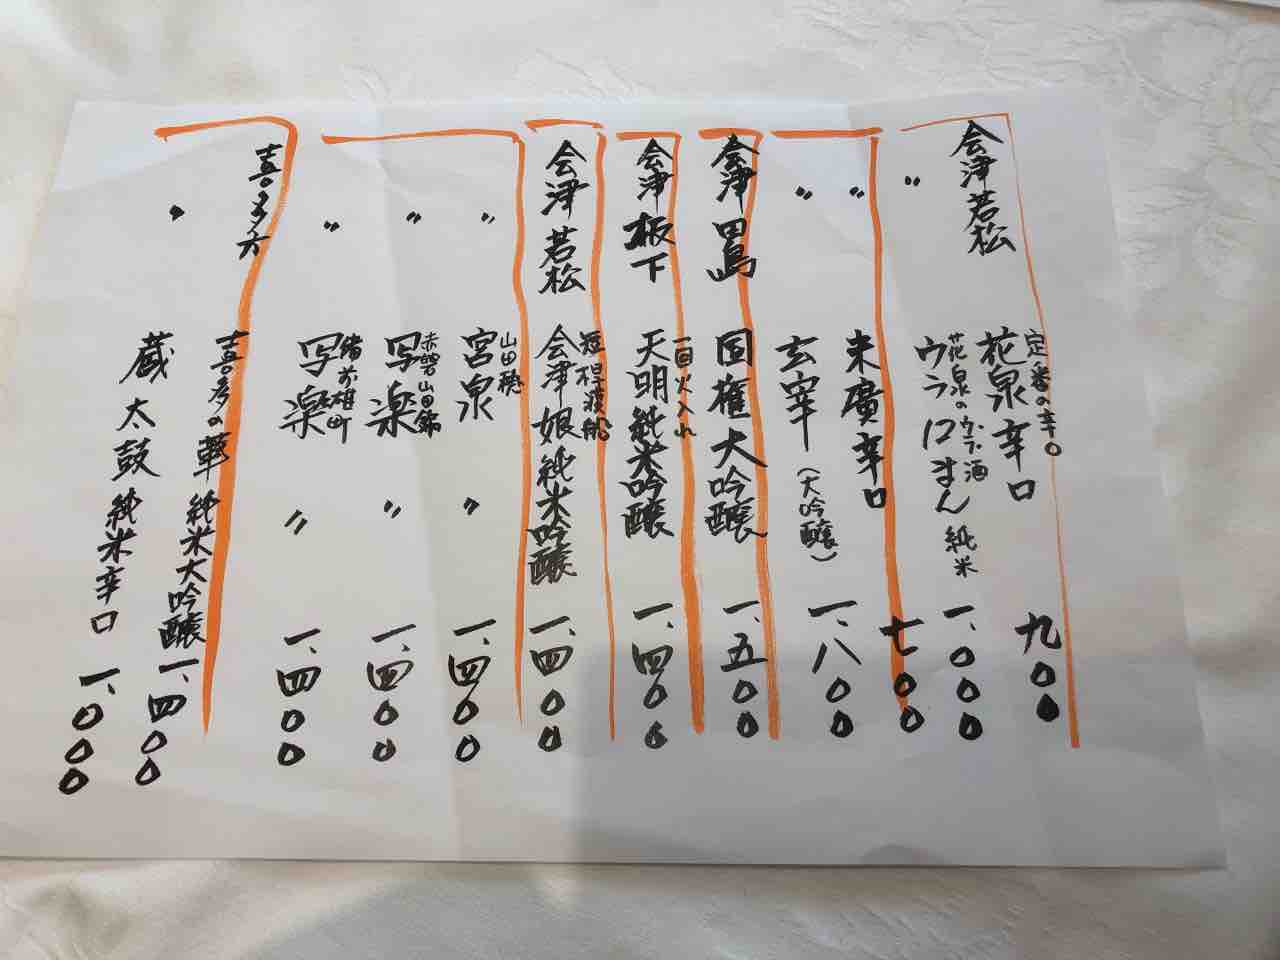 会津若松
定番の辛口
花泉辛口
九〇〇
〃
花泉のウラ酒
ウラロまん 純米
一、〇〇〇
〃
末廣辛口
七〇〇
〃
玄宰(大吟醸)
一、八〇〇
会津田島
国権大吟醸
一、五〇〇
会津板下
一回火入れ
天明純米吟醸
一、四〇〇
会津若松
短稈渡船
会津娘純米吟醸
一、四〇〇
〃
山田穂
宮泉 〃
一、四〇〇
〃
赤磐山田錦
写楽 〃
一、四〇〇
〃
備前雄町
写楽 〃
一、四〇〇
喜多方
喜多の華 純米大吟醸
一、四〇〇
〃
蔵太鼓 純米辛口
一、〇〇〇